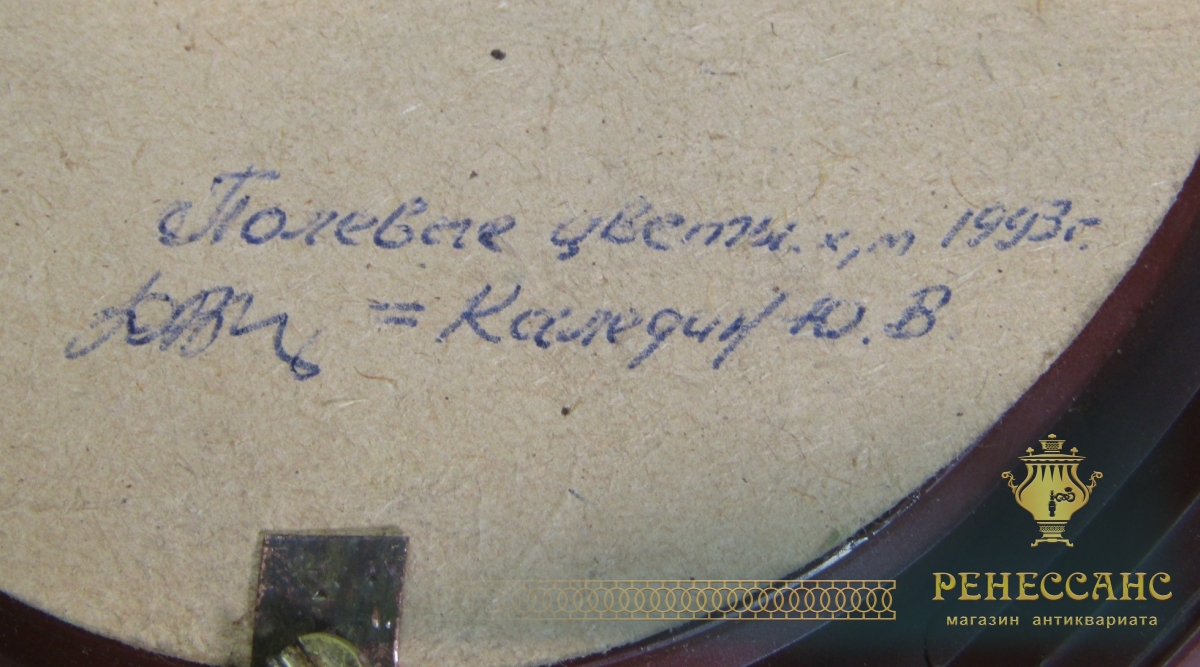 Полевые цветы. х,м 1993г.
= Каледин Ю. В.
РЕНЕССАНС
магазин антиквариата